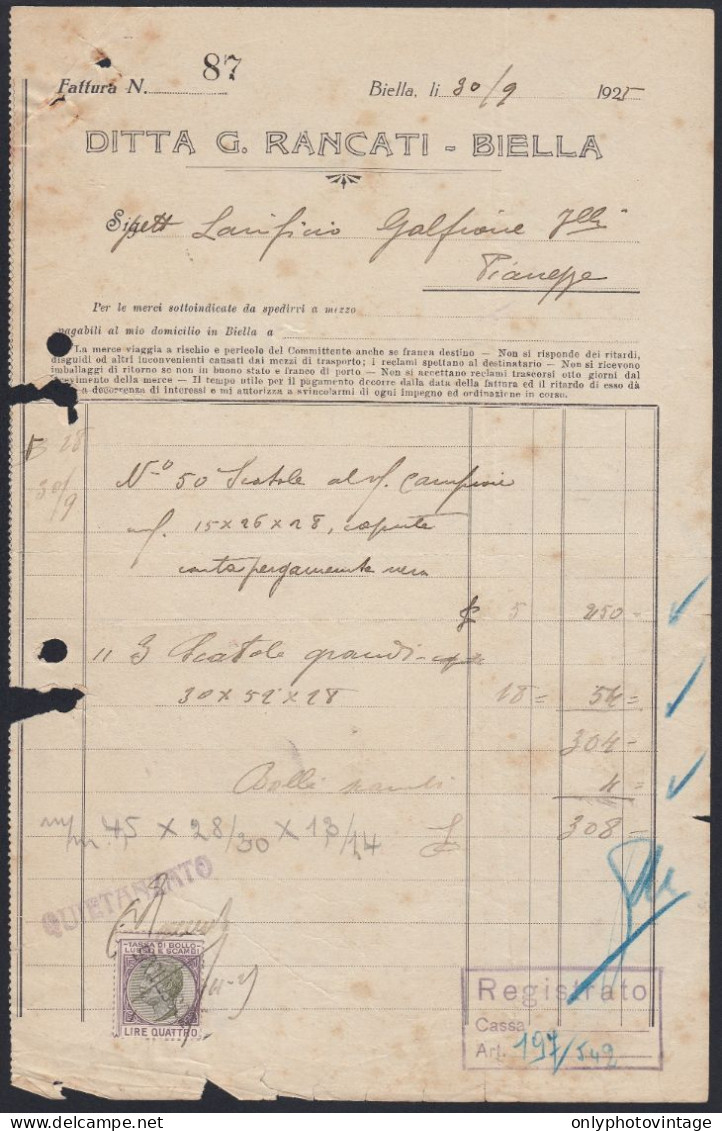 Fattura N. 87
Biella, li 30/9 1925
DITTA G. RANCATI - BIELLA
Lanificio Galfione Flli
Pianezze
Per le merci sottoindicate da spedirvi a mezzo
pagabili al mio domicilio in Biella a
La merce viaggia a rischio e pericolo del Committente anche se franca destino — Non si risponde dei ritardi,
disguidi od altri inconvenienti causati dai mezzi di trasporto; i reclami spettano al destinatario — Non si ricevono
imballaggi di ritorno se non in buono stato e franco di porto — Non si accettano reclami trascorsi otto giorni dal
ricevimento della merce — Il tempo utile per il pagamento decorre dalla data della fattura ed il ritardo di esso dà
a decorrenza di interessi e mi autorizza a svincolarmi di ogni impegno ed ordinazione in corso.
28
30/9
No 50 Scatole
15 x 26 x 28, coperte
carta pergamente nera
5 250 -
" 3 Scatole grandi
30 x 52 x 28
18 = 54 =
304 -
Bolli 4 =
308 =
45 x 28/30 x 13/14
QUIETANZATO
TASSA DI BOLLO
LUSSO E SCAMBI
LIRE QUATTRO
Registrato
Cassa
Art. 197/542
onlyphotovintage.com